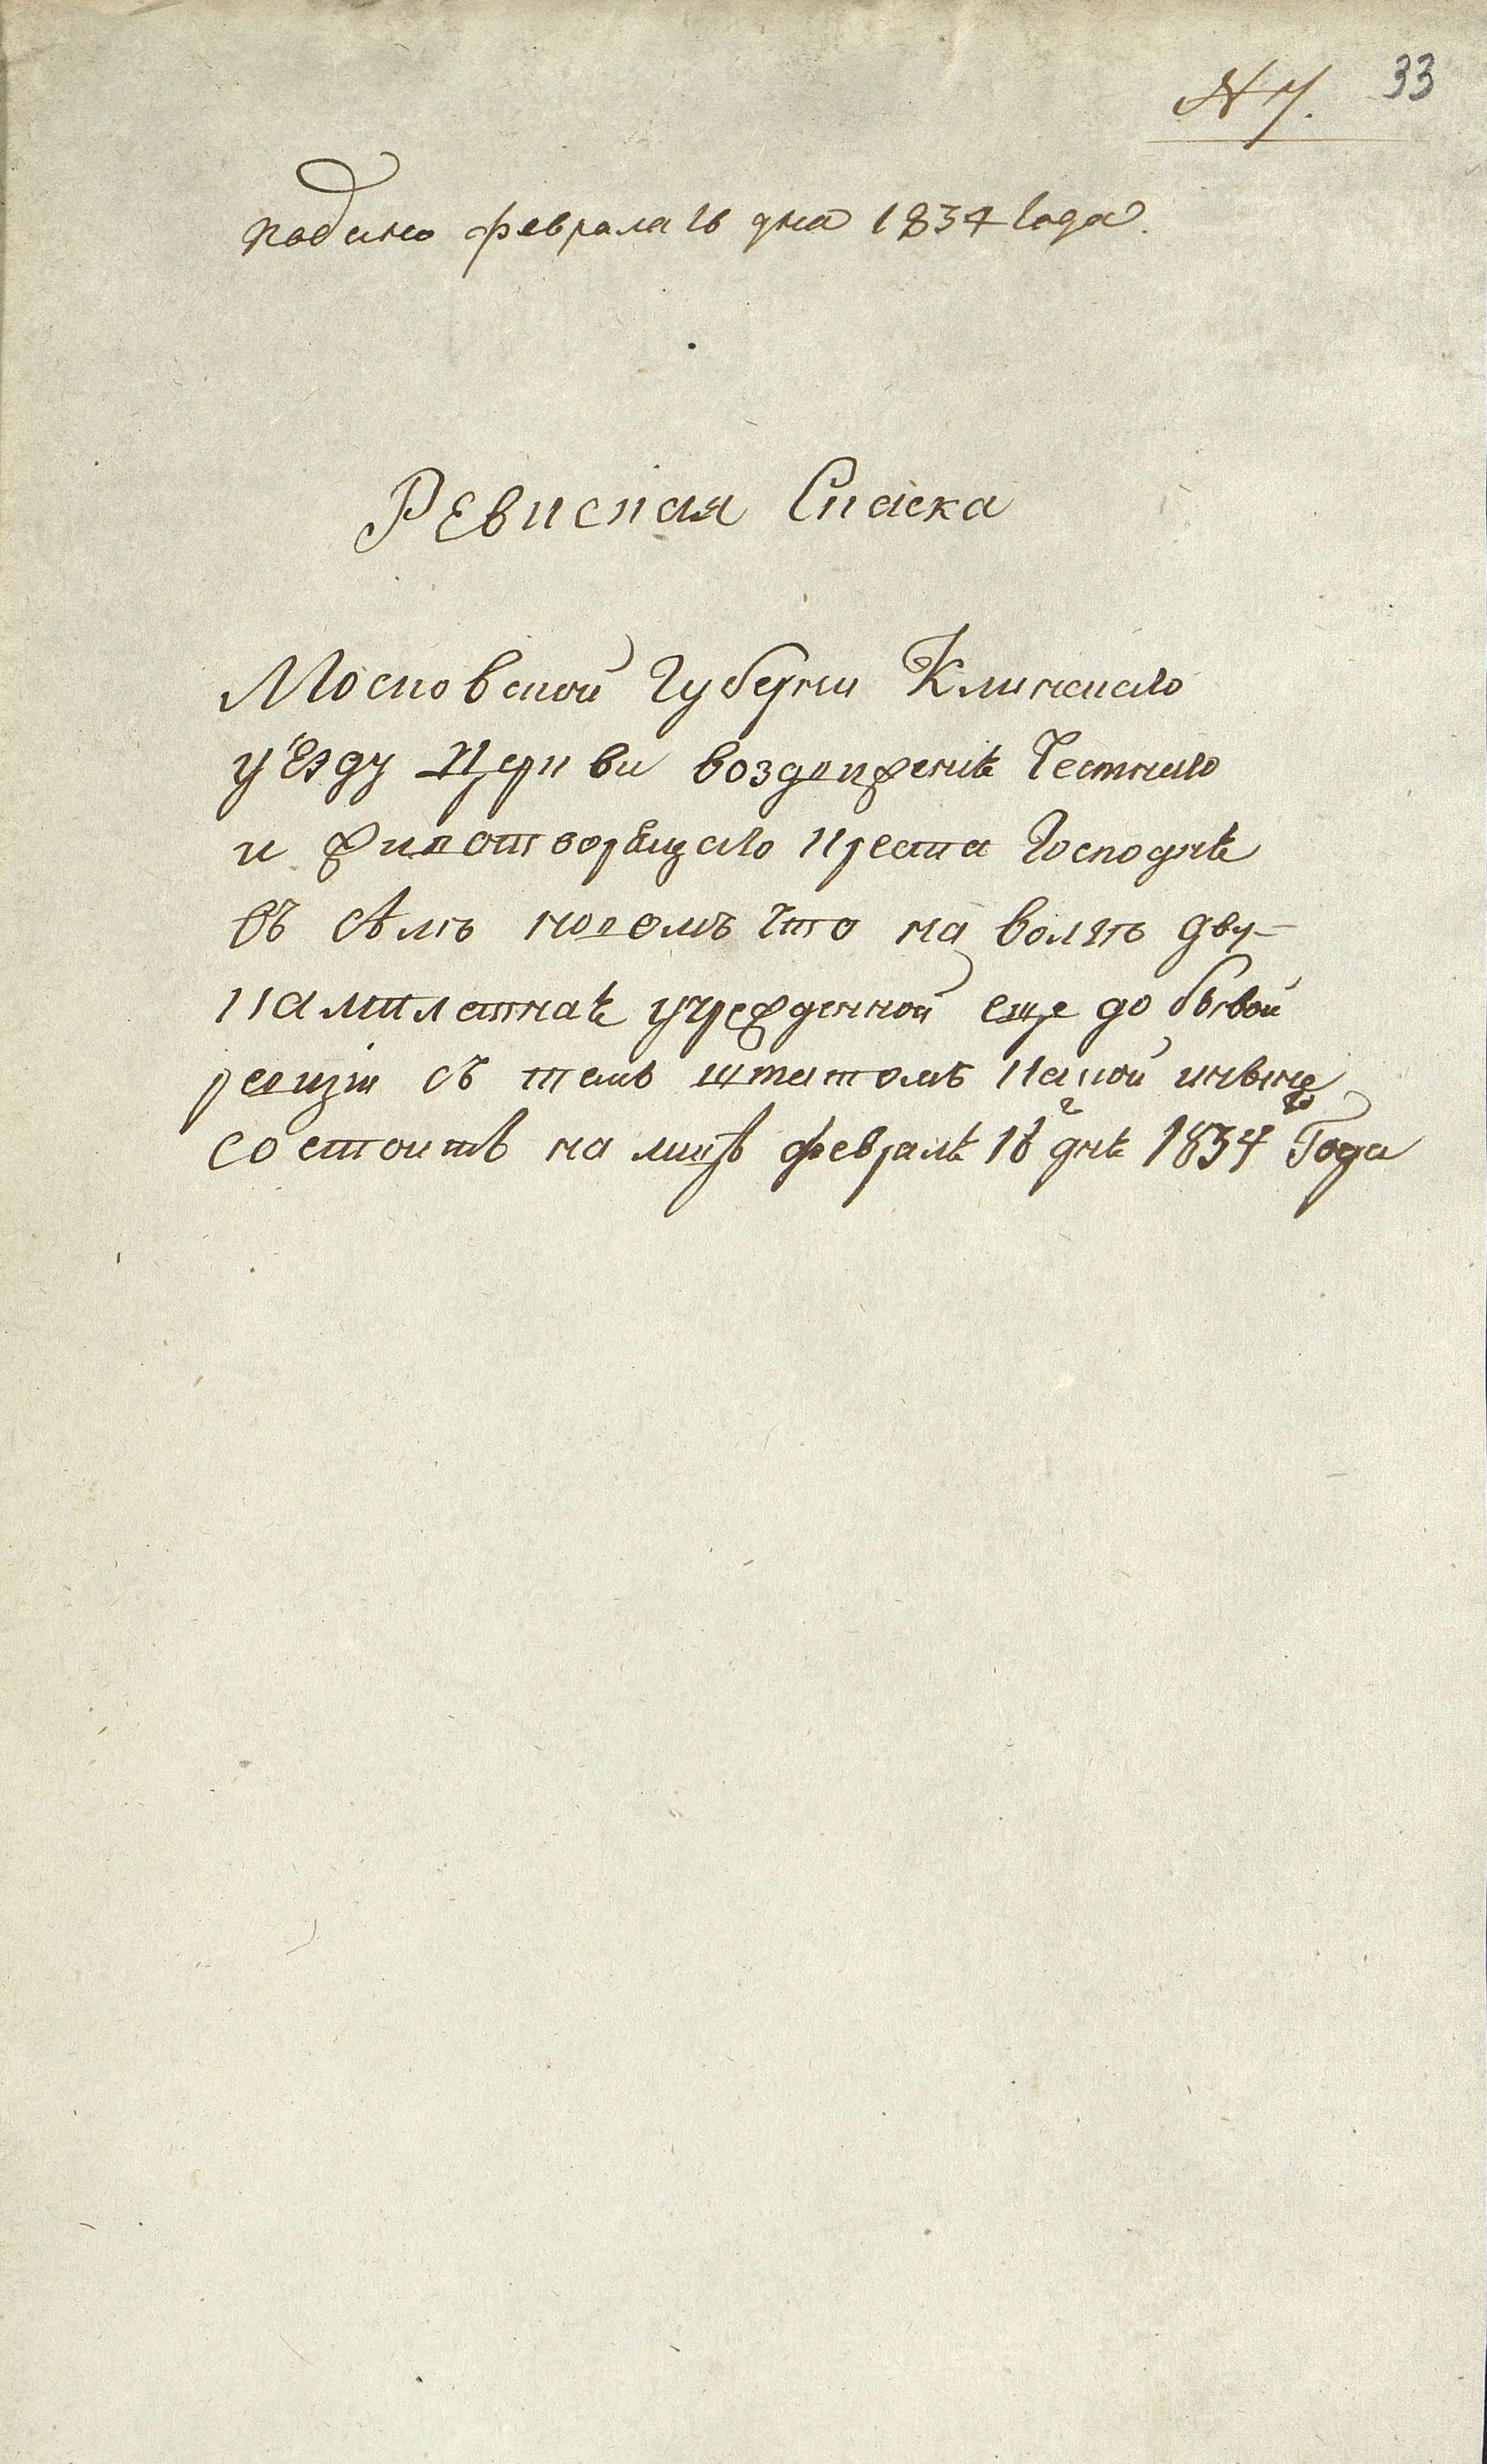 N 7. 33
Подано февраля 16 дня 1834 года.
Ревиская Скаска
Московской Губерни Клинскаго
уѣзду Церкви воздвиженія Честнаго
и животворящаго креста Господня
въ сѣлѣ новомъ что на
учрежденной еще до бывой
ревизіи съ тѣмъ штатомъ какой и нынѣ
состоитъ на лицѣ февраля 16 дня 1834 го Года